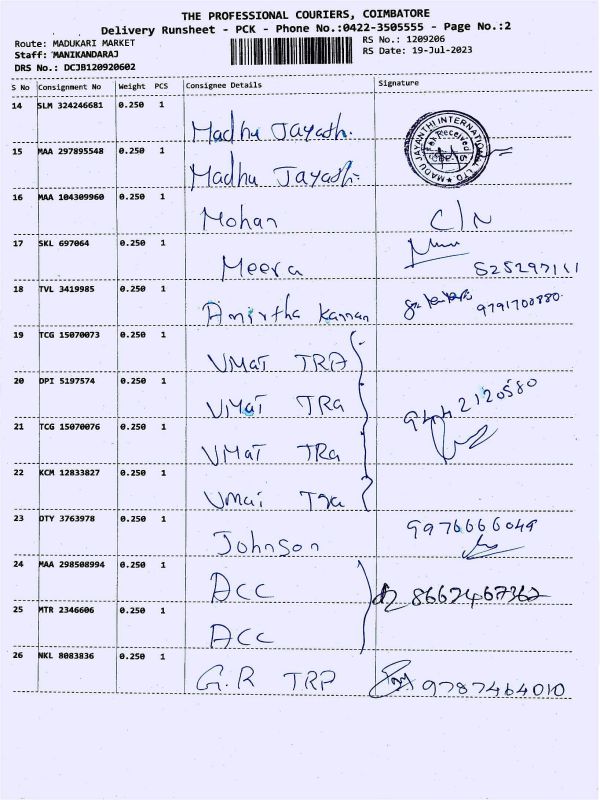 THE PROFESSIONAL COURIERS, COIMBATORE
Delivery Runsheet - PCK - Phone No.:0422-3505555 - Page No.:2
Route: MADUKARI MARKET RS No.: 1209206
Staff: MANIKANDARAJ RS Date: 19-Jul-2023
DRS No.: DCJB120920602
S No Consignment No Weight PCS Consignee Details Signature
14 SLM 324246681 0.250 1
Madhu Jayath.
MADU JAYANTHI INTERNATIONAL LTD
15 MAA 297895548 0.250 1
Madhu Jayath.
16 MAA 104309960 0.250 1
Mohan C/N
17 SKL 697064 0.250 1
Meera
18 TVL 3419985 0.250 1
Amirtha Kannan 9791700880.
19 TCG 15070073 0.250 1
VMaT TRA
20 DPI 5197574 0.250 1
VMaT TRa 9442120580
21 TCG 15070076 0.250 1
VMaT TRa
22 KCM 12833827 0.250 1
Vmai Tra
23 DTY 3763978 0.250 1
Johnson 9976666049
24 MAA 298508994 0.250 1
ACC 86674 67362
25 MTR 2346606 0.250 1
ACC
26 NKL 8083836 0.250 1
G.R TRP 9787464010